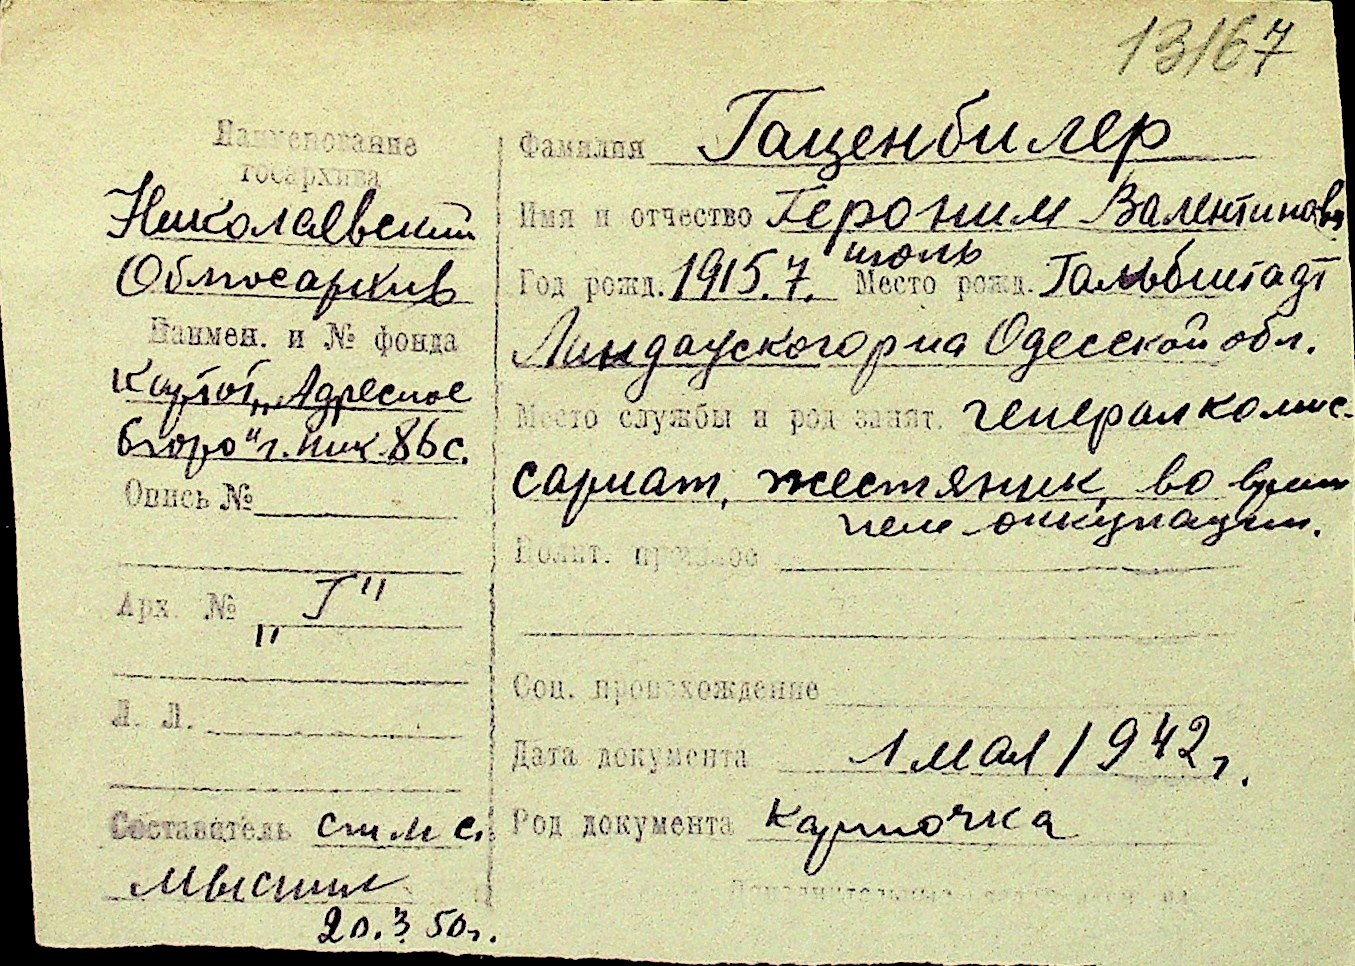 13167
Наименование
госархива
Николаевский
Облгосархив
Наимен. и № фонда
Картот. „Адресное
бюро" г. Ник 86 с.
Опись №
Арх. № „Г"
Л. Л.
Составитель
20.3.50г.
Фамилия Гаценбилер
Имя и отчество Героним Валентинович
июль
Год рожд. 1915.7. Место рожд. Гальбштадт
Ландауского р-на Одесской обл.
Место службы и род занят. генералкомис-
сариат, жестяник, во время
немецк. оккупации.
Полит. прошлое
Соц. происхождение
Дата документа 1 мая 1942 г.
Род документа карточка